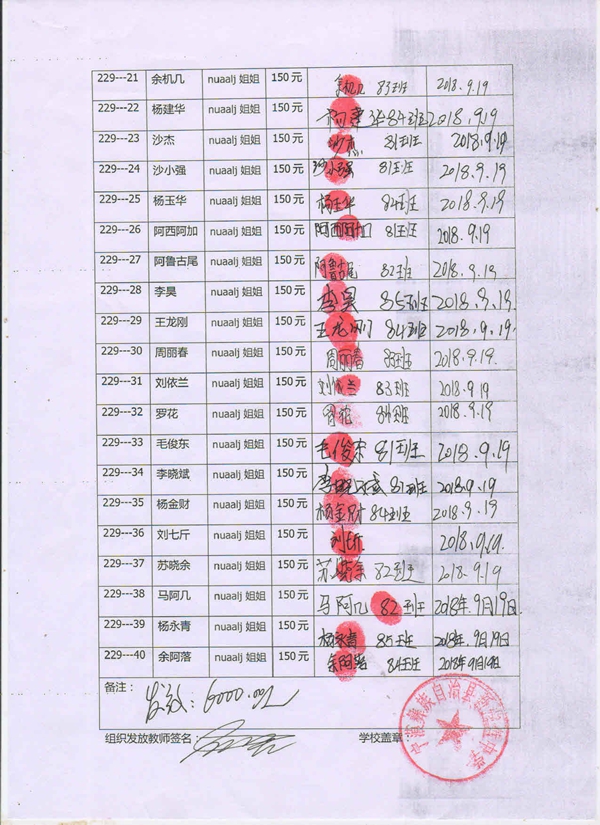 229---21 余机几 nuaalj 姐姐 150 元 余机几 83班 2018.9.19
229---22 杨建华 nuaalj 姐姐 150 元 杨建华 84班 2018.9.19
229---23 沙杰 nuaalj 姐姐 150 元 沙杰 81班 2018.9.19
229---24 沙小强 nuaalj 姐姐 150 元 沙小强 81班 2018.9.19
229---25 杨玉华 nuaalj 姐姐 150 元 杨玉华 84班 2018.9.19
229---26 阿西阿加 nuaalj 姐姐 150 元 阿西阿加 81班 2018.9.19
229---27 阿鲁古尾 nuaalj 姐姐 150 元 阿鲁古尾 82班 2018.9.19
229---28 李昊 nuaalj 姐姐 150 元 李昊 85班 2018.9.19
229---29 王龙刚 nuaalj 姐姐 150 元 王龙刚 84班 2018.9.19
229---30 周丽春 nuaalj 姐姐 150 元 周丽春 83班 2018.9.19
229---31 刘依兰 nuaalj 姐姐 150 元 刘依兰 83班 2018.9.19
229---32 罗花 nuaalj 姐姐 150 元 罗花 84班 2018.9.19
229---33 毛俊东 nuaalj 姐姐 150 元 毛俊东 81班 2018.9.19
229---34 李晓斌 nuaalj 姐姐 150 元 李晓斌 81班 2018.9.19
229---35 杨金财 nuaalj 姐姐 150 元 杨金财 84班 2018.9.19
229---36 刘七斤 nuaalj 姐姐 150 元 2018.9.19.
229---37 苏晓余 nuaalj 姐姐 150 元 苏晓余 82班 2018.9.19
229---38 马阿几 nuaalj 姐姐 150 元 马阿几 82班 2018年9月19日
229---39 杨永青 nuaalj 姐姐 150 元 杨永青 85班 2018年.9月19日
229---40 余阿落 nuaalj 姐姐 150 元 余阿落 84班 2018年9月19日
备注：
发放：6000.00元
组织发放教师签名： 学校盖章：
宁蒗彝族自治县